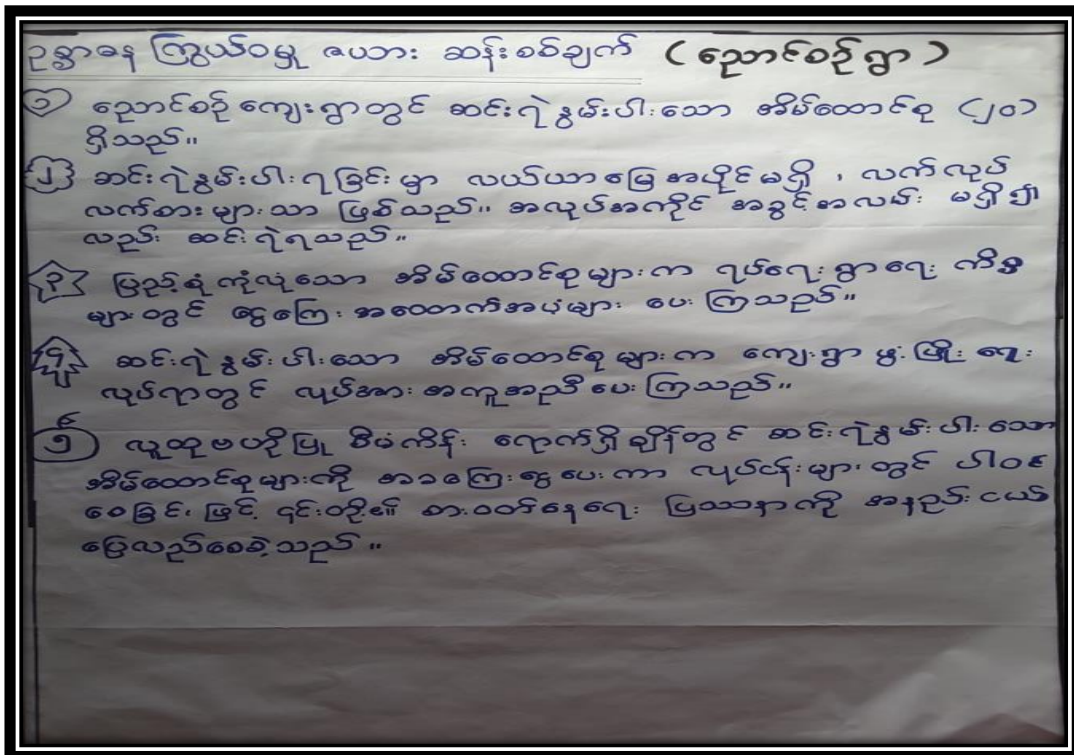 ဥစ္စာဓန ကြွယ်ဝမှု ဇယား ဆန်းစစ်ချက် (ညောင်စဉ်ရွာ)
၁ ညောင်စဉ်ကျေးရွာတွင် ဆင်းရဲနွမ်းပါးသော အိမ်ထောင်စု (၂၀)
ရှိသည်။
၂ ဆင်းရဲနွမ်းပါးရခြင်းမှာ လယ်ယာမြေအပိုင်မရှိ ၊ လက်လုပ်
လက်စားများသာ ဖြစ်သည်။ အလုပ်အကိုင် အခွင့်အလမ်း မရှိ၍
လည်း ဆင်းရဲရသည်။
၃ ပြည့်စုံကုံလုံသော အိမ်ထောင်စုများက ရပ်ရေးရွာရေး ကိစ္စ
များတွင် ငွေကြေး အထောက်အပံ့များ ပေးကြသည်။
၄ ဆင်းရဲနွမ်းပါးသော အိမ်ထောင်စုများက ကျေးရွာ ဖွံ့ဖြိုးရေး
လုပ်ရာတွင် လုပ်အား အကူအညီပေးကြသည်။
၅ လူထုဗဟိုပြု စီမံကိန်း ရောက်ရှိချိန်တွင် ဆင်းရဲနွမ်းပါးသော
အိမ်ထောင်စုများကို အခကြေးငွေပေးကာ လုပ်ငန်းများတွင် ပါဝင်
စေခြင်းဖြင့် ၎င်းတို့၏ စားဝတ်နေရေး ပြဿနာကို အနည်းငယ်
ပြေလည်စေခဲ့သည်။